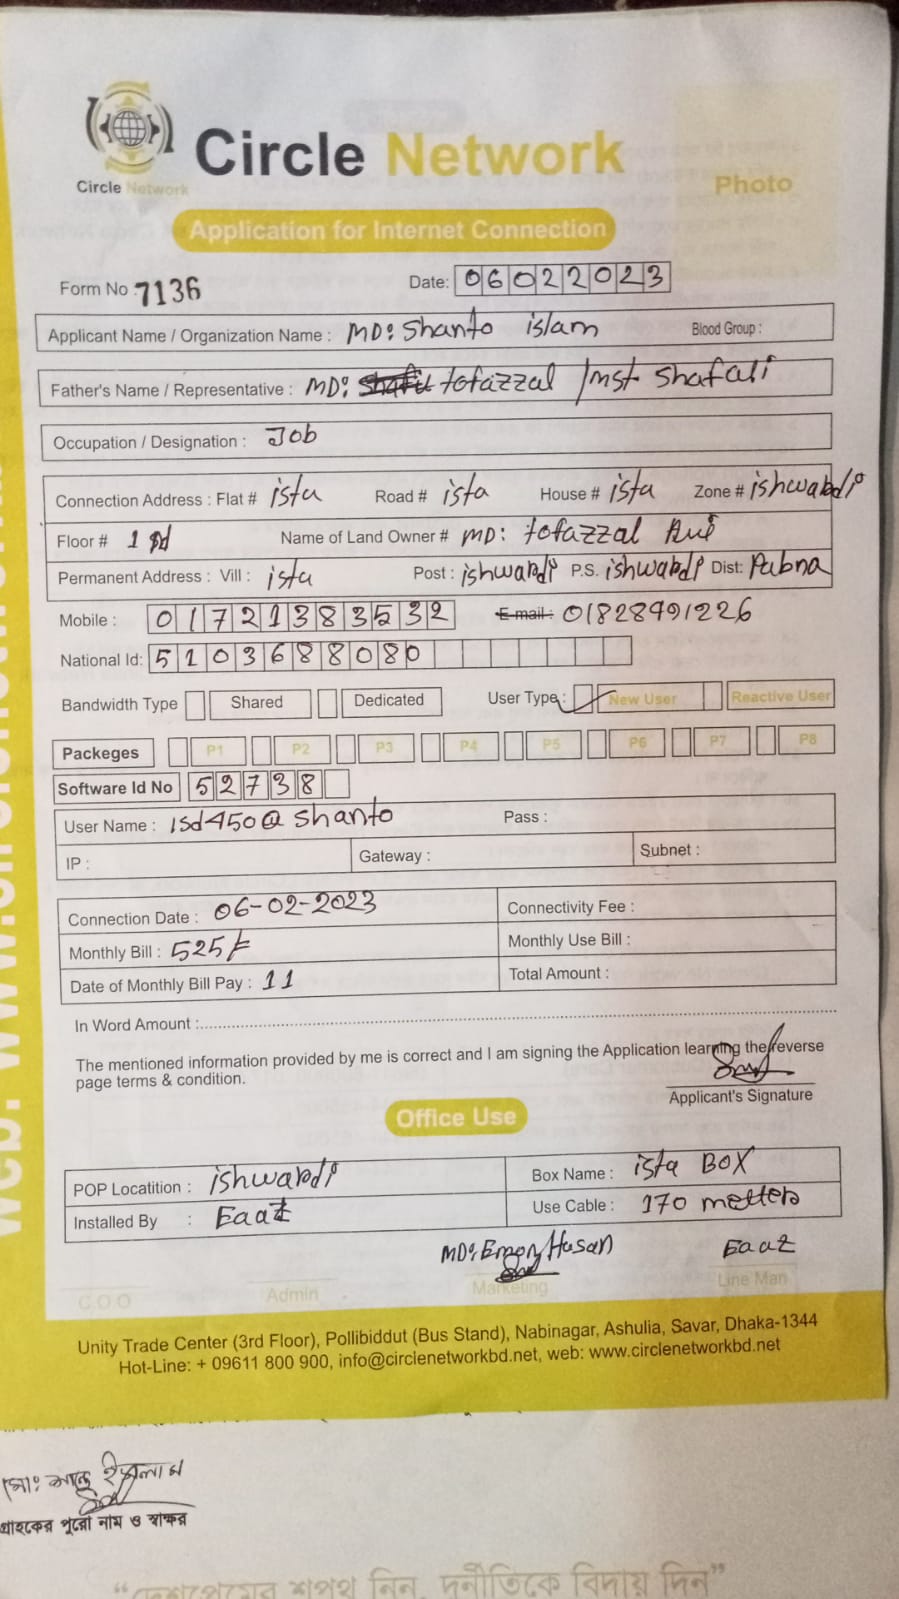 Circle Network
Circle Network
Photo
Application for Internet Connection
Form No : 7136 Date: 06022023
Applicant Name / Organization Name : MD: Shanto islam Blood Group :
Father's Name / Representative : MD: tofazzal /mst. Shafali
Occupation / Designation : Job
Connection Address : Flat # ista Road # ista House # ista Zone # ishwardi
Floor # 1 Name of Land Owner # MD: tofazzal
Permanent Address : Vill : ista Post : ishwardi P.S. ishwardi Dist: Pabna
Mobile : 01721383532 E-mail : 01828991226
National Id: 5103688080
Bandwidth Type Shared Dedicated User Type : New User Reactive User
Packeges P1 P2 P3 P4 P5 P6 P7 P8
Software Id No 52738
User Name : isd450@shanto Pass :
IP : Gateway : Subnet :
Connection Date : 06-02-2023 Connectivity Fee :
Monthly Bill : 525/= Monthly Use Bill :
Date of Monthly Bill Pay : 11 Total Amount :
In Word Amount :
The mentioned information provided by me is correct and I am signing the Application learning the reverse
page terms & condition.
Applicant's Signature
Office Use
POP Locatition : ishwardi Box Name : ista BOX
Installed By : Eaaz Use Cable : 170 metters
MD: Emon Hasan Eaaz
C.O.O Admin Marketing Line Man
Unity Trade Center (3rd Floor), Pollibiddut (Bus Stand), Nabinagar, Ashulia, Savar, Dhaka-1344
Hot-Line: + 09611 800 900, info@circlenetworkbd.net, web: www.circlenetworkbd.net
মো: শান্ত ইসলাম
গ্রাহকের পুরো নাম ও স্বাক্ষর
“দেশপ্রেমের শপথ নিন, দুর্নীতিকে বিদায় দিন”